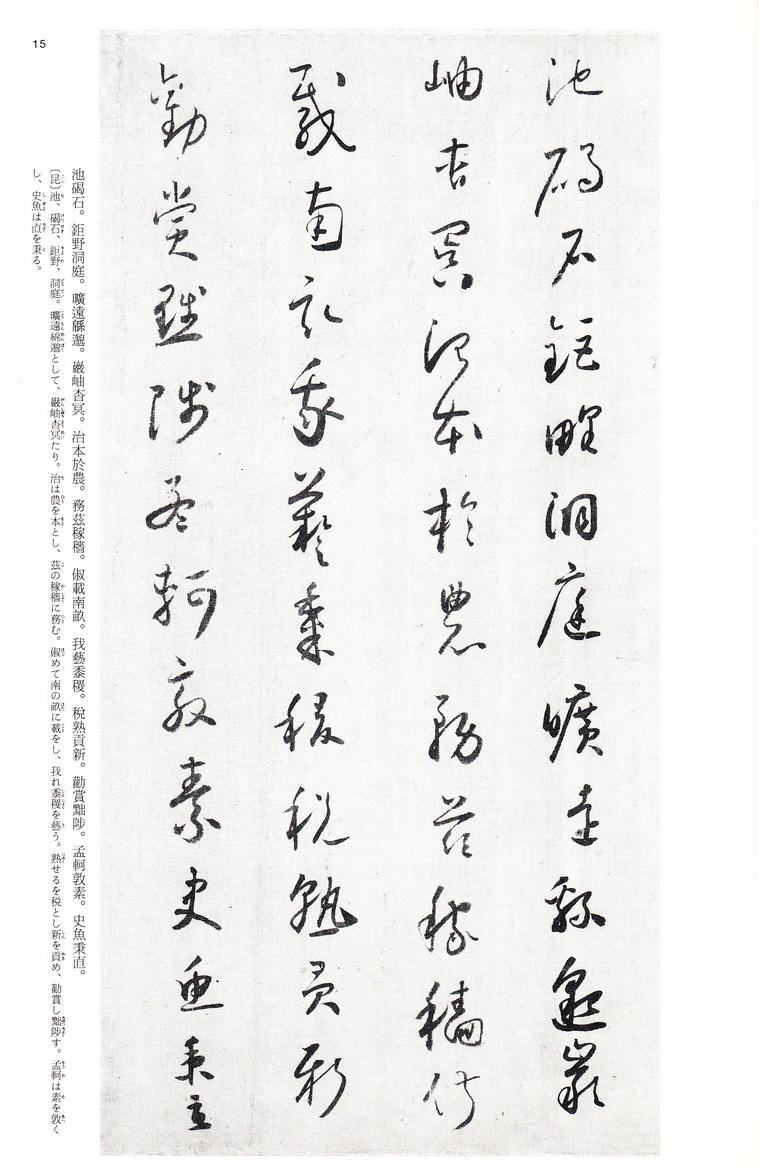 池碣石鉅野洞庭曠遠緜邈巖
岫杳冥治本於農務茲稼穡俶
載南畝我藝黍稷稅熟貢新
勸賞黜陟孟軻敦素史魚秉直
池碣石。鉅野洞庭。曠遠緜邈。巌岫杳冥。治本於農。務茲稼穡。俶載南畝。我藝黍稷。税熟貢新。勸賞黜陟。孟軻敦素。史魚秉直。
〔昆〕池、碣石、鉅野、洞庭。曠遠綿邈として、巌岫杳冥たり。治は農を本とし、茲の稼穡に務む。俶めて南の畝に載をし、我れ黍稷を藝う。熟せるを税とし新を貢め、勧賞し黜陟す。孟軻は素を敦く
し、史魚は直を秉る。
15